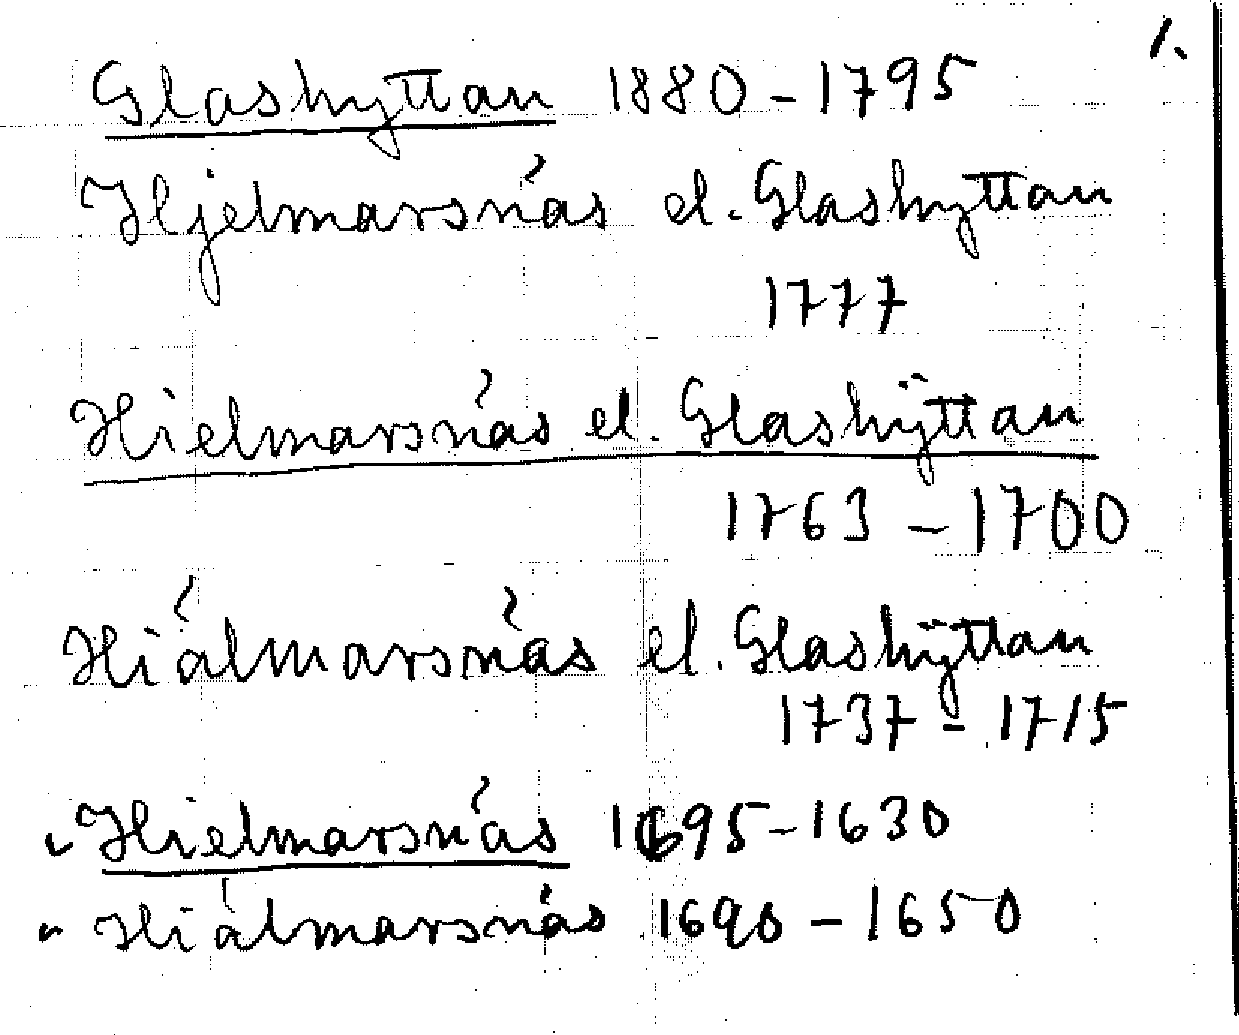 1.
Glashyttan 1880-1795
Hjelmarsnäs el. Glashyttan
1777
Hielmarsnäs el. Glashÿttan
1763 - 1700
Hiälmarsnäs el. Glashÿttan
1737 - 1715
Hielmarsnäs 1695-1630
" Hiälmarsnäs 1690 - 1650